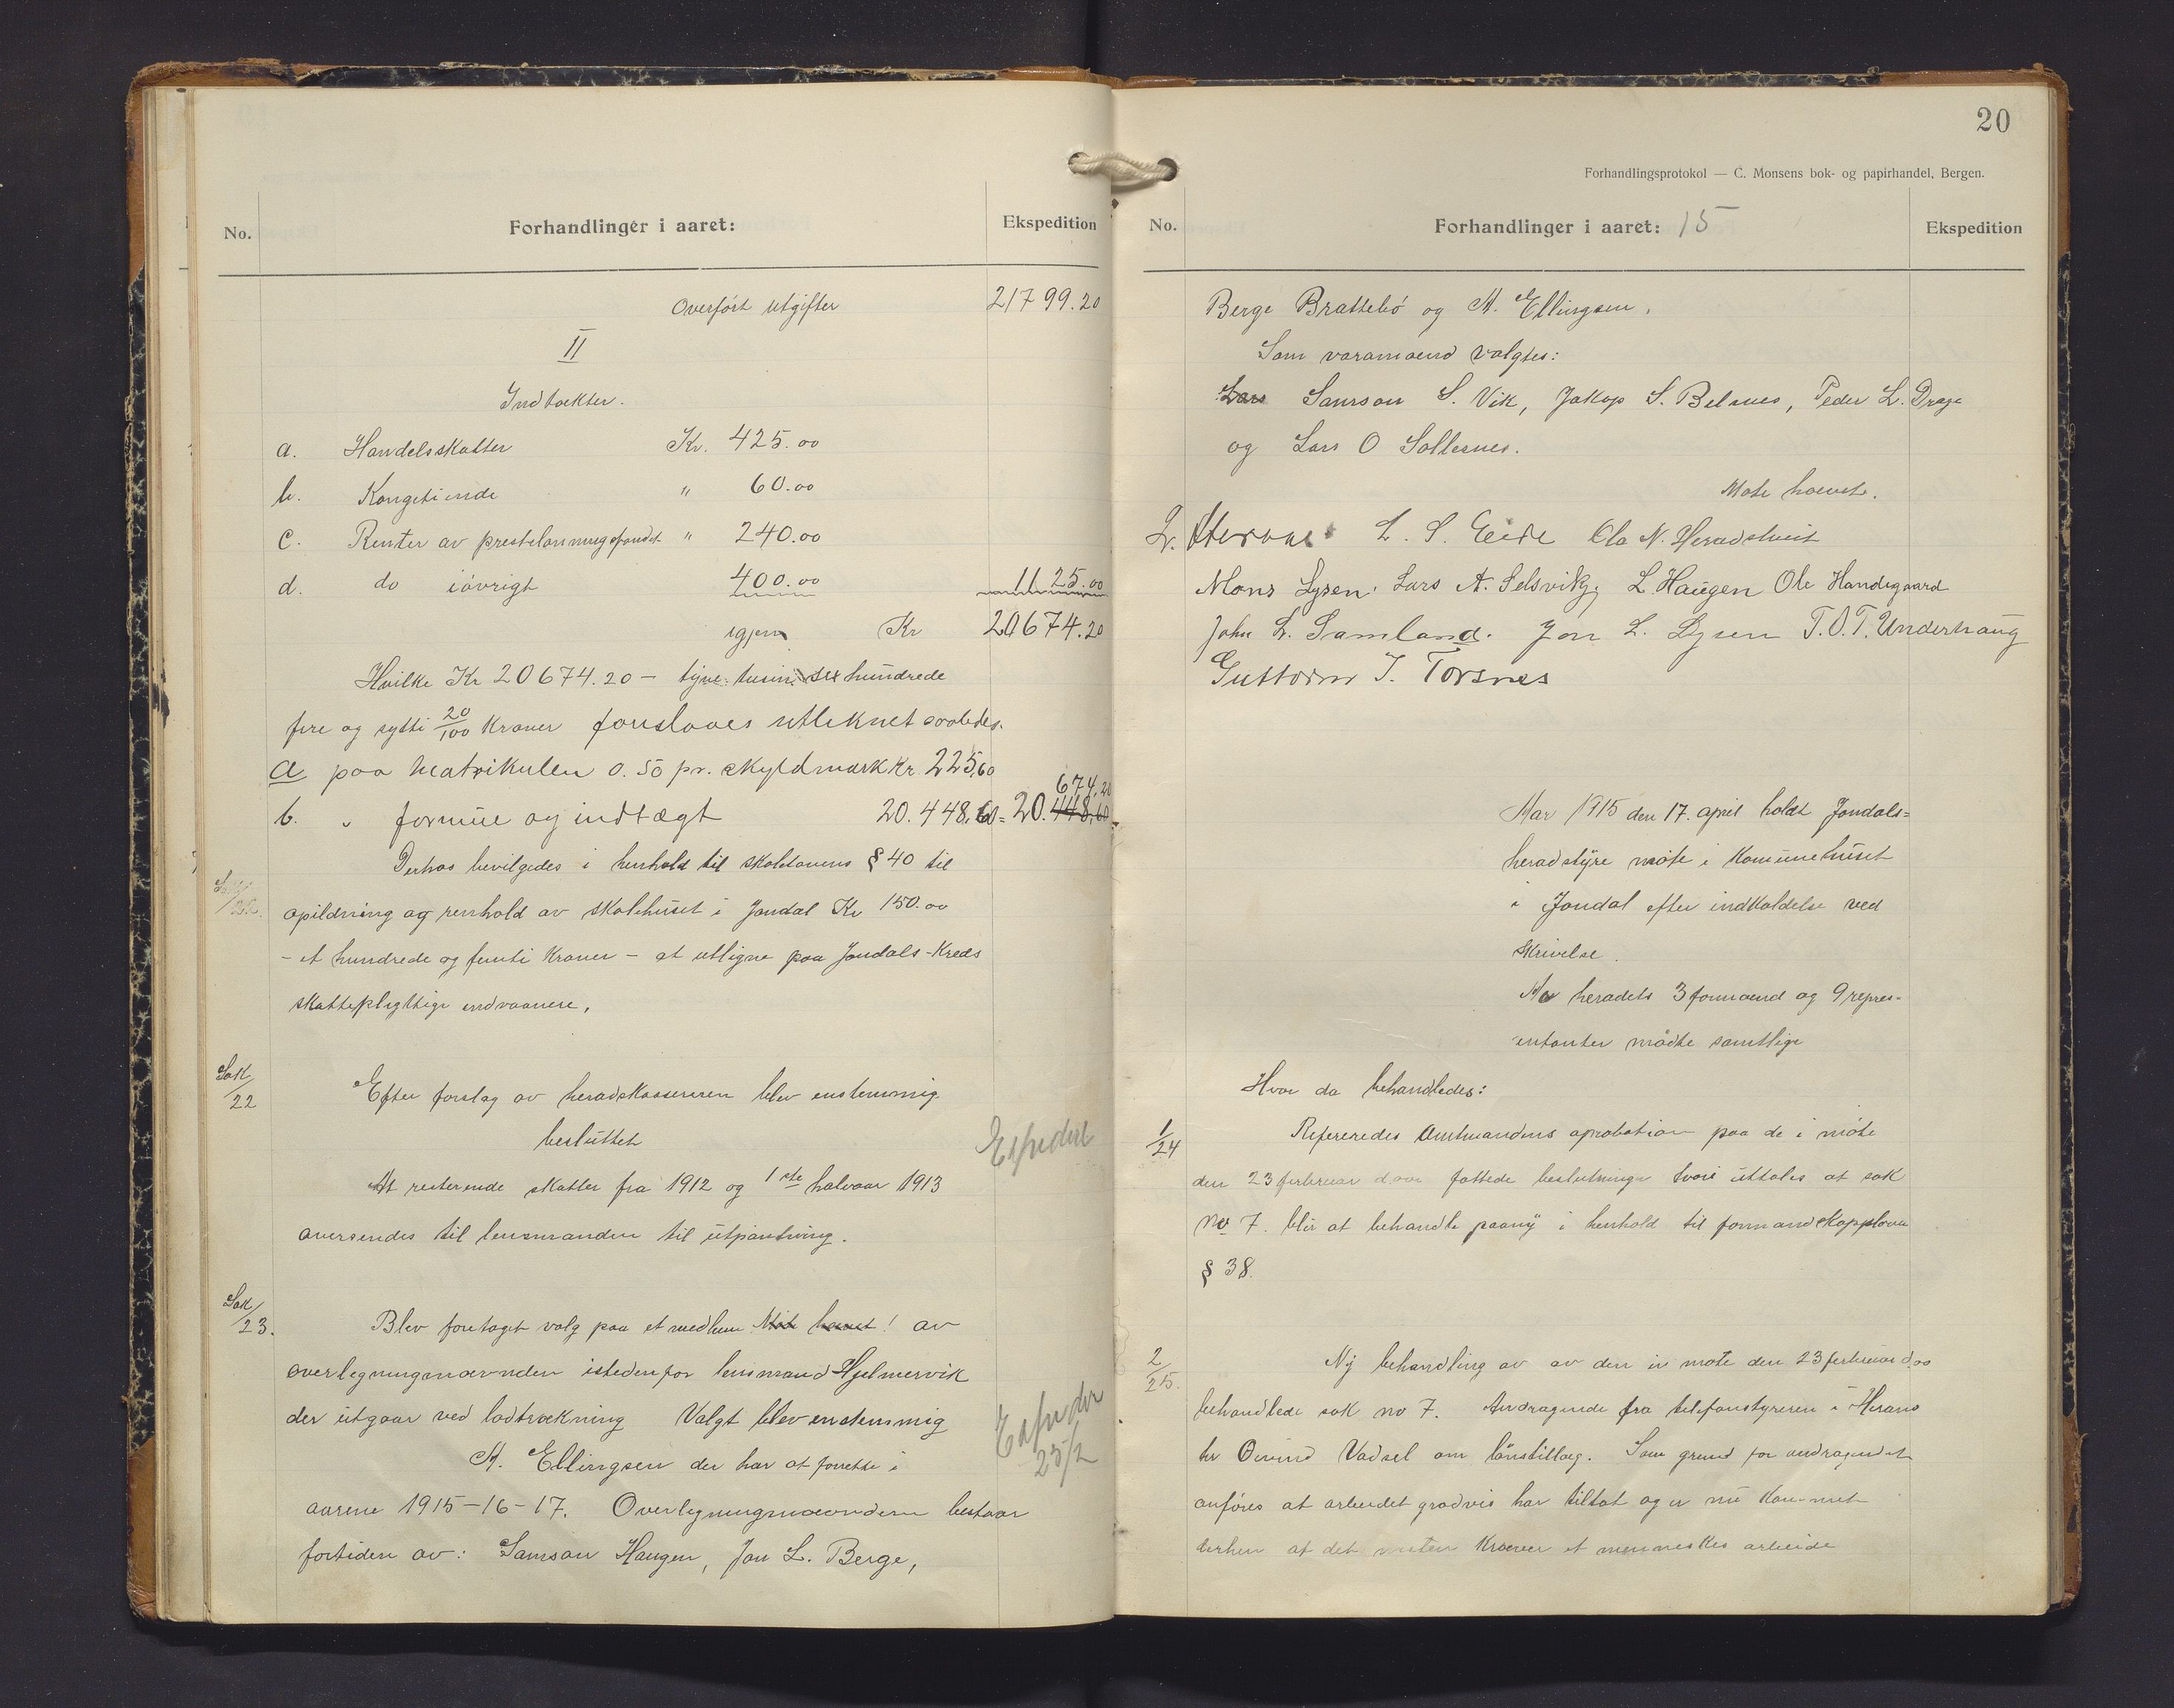 No.
Forhandlinger i aaret:
Ekspedition
Overført utgifter 21799.20
II
Indtækter.
a. Handelsskatter Kr. 425.00
b. Kongetiende " 60.00
c. Renter av prestelønningsfondet " 240.00
d. do iøvrigt 400.00 1125.00
igjen Kr 20674.20
Hvilke Kr 20674.20 – tyve tusin sex hundrede
fire og sytti 20/100 Kroner foreslaaes utliknet saaledes.
a paa Matrikulen 0.50 pr. skyldmark Kr. 225,60
674,20
b. " formue og indtægt 20.448,60 = 20.448,60
Derhos bevilgedes i henhold til skolelovens § 40 til
opildning og renhold av skolehuset i Jondal Kr 150.00
– et hundrede og femti Kroner – at utligne paa Jondals-Kreds
skattepligtige indvaanere,
Sak/22
Efter forslag av heradskassereren blev enstemmig
besluttet
At resterende skatter fra 1912 og 1ste halvaar 1913
oversendes til lensmanden til utpantning.
Sak/23.
Blev foretaget valg paa et medlem Møte hævet! av
overlegningsnævnden istedenfor lensmand Hjelmervik
der utgaar ved lodtrækning Valgt blev enstemmig
A. Ellingsen der har at forrette i
aarene 1915–16–17. Overlegningsnævnden bestaar
fortiden av: Samson Haugen, Jon L. Berge,
25/2
20
Forhandlingsprotokol — C. Monsens bok- og papirhandel, Bergen.
No.
Forhandlinger i aaret: 15
Ekspedition
Berge Brattebø og A. Ellingsen.
Som varamænd valgtes:
Lars Samson S. Vik, Jakop S. Belsnes, Peder L. Drage
og Lars O Sollesnes.
Møte hævet.
L. S. Eide Ola N. Heradstveit
Mons Lysen. Lars A. Selsvik, L. Haugen Ole Handegaard
John L. Samland. Jon L. Lysen T.O.T. Underhaug
Guttorm J. Torsnes
Aar 1915 den 17. april holdt Jondals=
heradstyre møte i Komunehuset
i Jondal efter indkaldelse ved
skrivelse.
Av heradets 3 formænd og 9 repres-
entanter mødte samtlige
Hvor da behandledes:
1/24
Refereredes Amtmandens aprobation paa de i møte
den 23 februar d.aa fattede beslutninger hvori uttales at sak
No 7. blir at behandle paany i henhold til formandskapsloven
§ 38.
2/25.
Ny behandling av av den in møte den 23 februar d.aa
behandlede sak no 7. Andragende fra telefonstyreren i Herans
hr Øivind Vadsel om lønstillæg. Som grund for andragendet
anføres at arbeidet gradvis har tiltat og er nu kommet
derhen at det kræver et menneskes arbeide